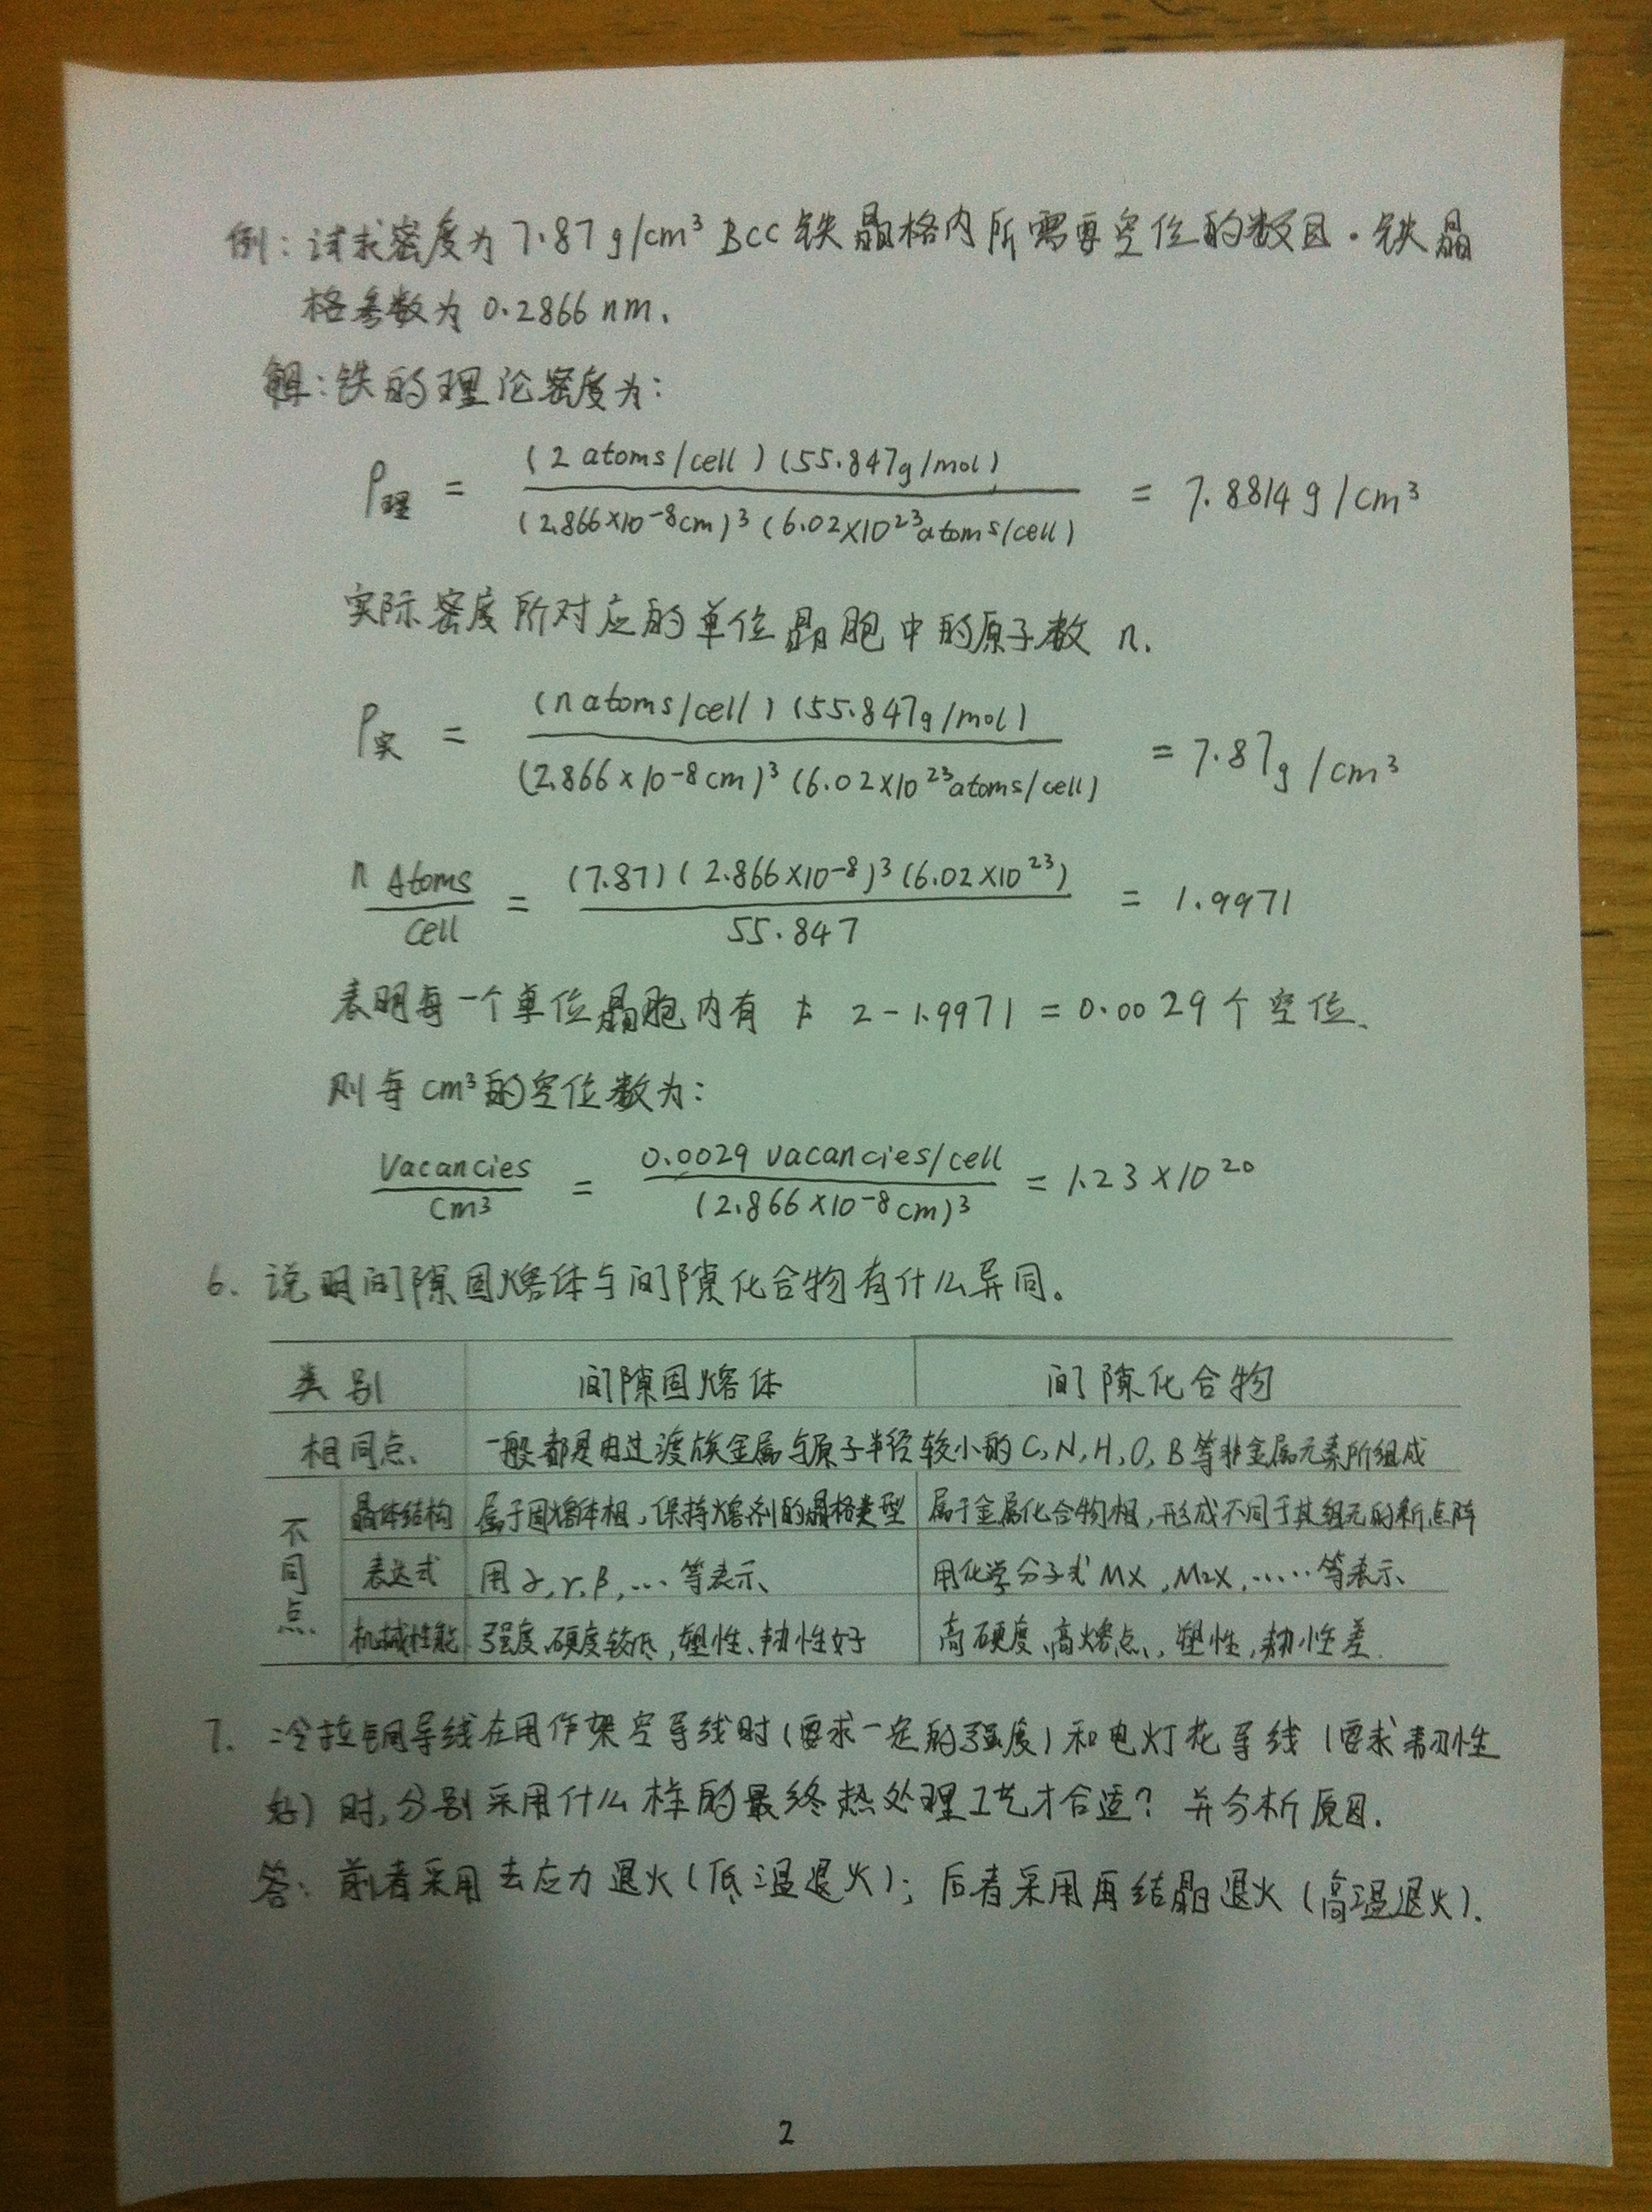 例：试求密度为 7.87 g/cm³ Bcc 铁晶格内所需要空位的数目．铁晶
格参数为 0.2866 nm.
解：铁的理论密度为：
ρ理 = (2 atoms/cell)(55.847g/mol) / (2.866×10⁻⁸cm)³(6.02×10²³atoms/cell) = 7.8814g/cm³
实际密度所对应的单位晶胞中的原子数 n.
ρ实 = (n atoms/cell)(55.847g/mol) / (2.866×10⁻⁸cm)³(6.02×10²³atoms/cell) = 7.87g/cm³
n Atoms / cell = (7.87)(2.866×10⁻⁸)³(6.02×10²³) / 55.847 = 1.9971
表明每一个单位晶胞内有 2-1.9971=0.0029个空位.
则每cm³的空位数为：
Vacancies / Cm³ = 0.0029 vacancies/cell / (2.866×10⁻⁸cm)³ = 1.23×10²⁰
6. 说明间隙固熔体与间隙化合物有什么异同。
类别 间隙固熔体 间隙化合物
相同点. 一般都是由过渡族金属与原子半径较小的C,N,H,O,B等非金属元素所组成
不同点 晶体结构 属于固熔体相，保持熔剂的晶格类型 属于金属化合物相，形成不同于其组元的新点阵
表达式 用α,γ,β,…等表示、 用化学分子式MX,M2X,……等表示、
机械性能 强度、硬度较低，塑性、韧性好 高硬度、高熔点、塑性，韧性差.
7. 冷拉铜导线在用作架空导线时(要求一定的强度)和电灯花导线(要求韧性
好)时，分别采用什么样的最终热处理工艺才合适？并分析原因.
答：前者采用去应力退火(低温退火)；后者采用再结晶退火(高温退火).
2